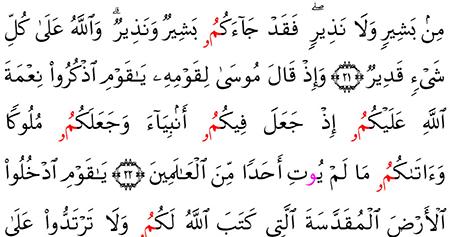 مِنۢ بَشِيرٍ وَلَا نَذِيرٍۖ فَقَدْ جَآءَكُمُۥ بَشِيرٌ وَنَذِيرٌۗ وَاللَّهُ عَلَىٰ كُلِّ
شَيْءٍ قَدِيرٌ ٢١ وَإِذْ قَالَ مُوسَىٰ لِقَوْمِهِۦ يَٰقَوْمِ اذْكُرُوا۟ نِعْمَةَ
اللَّهِ عَلَيْكُمُۥ إِذْ جَعَلَ فِيكُمُۥ أَنۢبِيَآءَ وَجَعَلَكُمُۥ مُلُوكًا
وَءَاتَىٰكُمُۥ مَا لَمْ يُوتِ أَحَدًا مِّنَ الْعَٰلَمِينَ ٢٢ يَٰقَوْمِ ادْخُلُوا۟
الْأَرْضَ الْمُقَدَّسَةَ الَّتِي كَتَبَ اللَّهُ لَكُمُۥ وَلَا تَرْتَدُّوا۟ عَلَىٰ